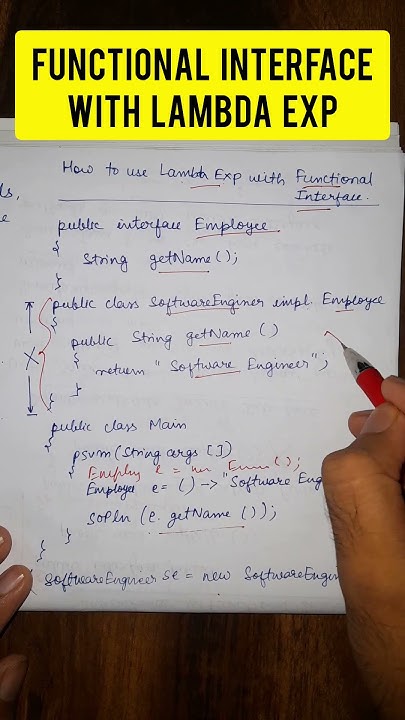 FUNCTIONAL INTERFACE
WITH LAMBDA EXP
How to use Lambda Exp with Functional
Interface.
public interface Employee
{
String getName();
}
public class SoftwareEnginer impl. Employee
{
public String getName()
{
return "Software Engineer";
}
}
X
public class Main
{
psvm(String args [])
{
e =
Employee e = () -> "Software Eng
SOPln (e.getName());
}
}
SoftwareEngineer se = new SoftwareEngin